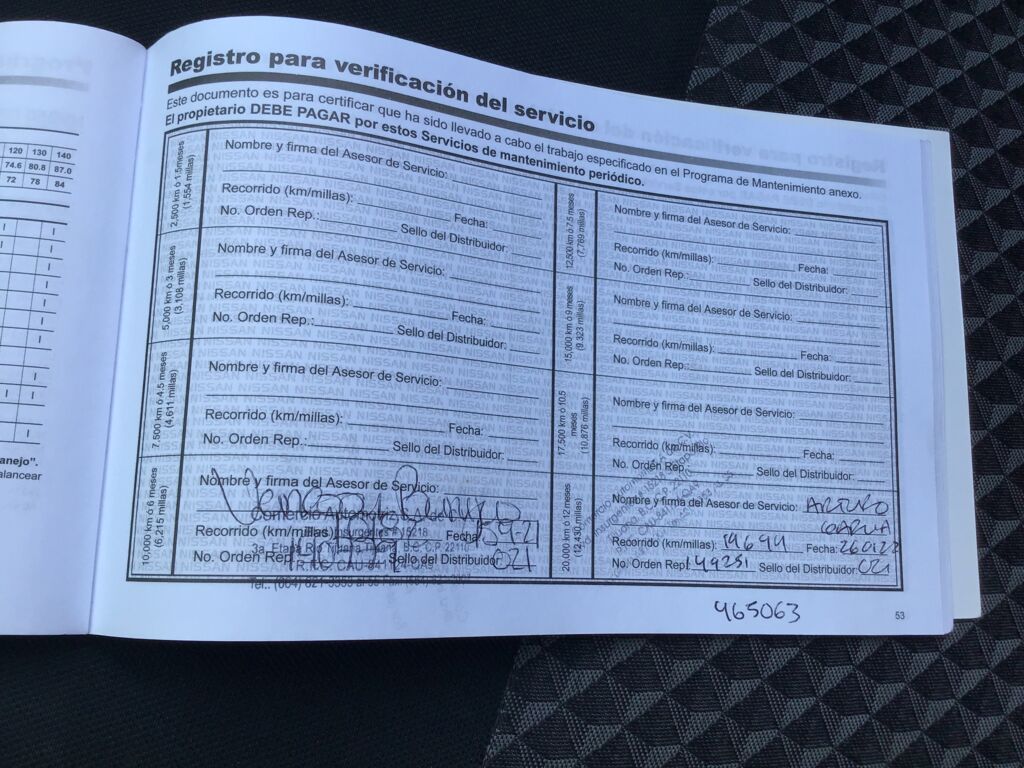 120 130 140
74.6 80.8 87.0
72 78 84
anejo".
alancear
Registro para verificación del servicio
Este documento es para certificar que ha sido llevado a cabo el trabajo especificado en el Programa de Mantenimiento anexo.
El propietario DEBE PAGAR por estos Servicios de mantenimiento periódico.
2,500 km ó 1.5 meses
(1,554 millas)
Nombre y firma del Asesor de Servicio:
Recorrido (km/millas): Fecha:
No. Orden Rep.: Sello del Distribuidor:
5,000 km ó 3 meses
(3,108 millas)
Nombre y firma del Asesor de Servicio:
Recorrido (km/millas): Fecha:
No. Orden Rep.: Sello del Distribuidor:
7,500 km ó 4.5 meses
(4,611 millas)
Nombre y firma del Asesor de Servicio:
Recorrido (km/millas): Fecha:
No. Orden Rep.: Sello del Distribuidor:
10,000 km ó 6 meses
(6,215 millas)
Nombre y firma del Asesor de Servicio:
Recorrido (km/millas): Fecha
No. Orden Rep. Sello del Distribuidor: 021
12,500 km ó 7.5 meses
(7,769 millas)
Nombre y firma del Asesor de Servicio:
Recorrido (km/millas): Fecha:
No. Orden Rep.: Sello del Distribuidor:
15,000 km ó 9 meses
(9,323 millas)
Nombre y firma del Asesor de Servicio:
Recorrido (km/millas): Fecha:
No. Orden Rep.: Sello del Distribuidor:
17,500 km ó 10.5
meses
(10,876 millas)
Nombre y firma del Asesor de Servicio:
Recorrido (km/millas): Fecha:
No. Orden Rep. Sello del Distribuidor:
20,000 km ó 12 meses
(12,430 millas)
Nombre y firma del Asesor de Servicio: ARTURO
GARCIA
Recorrido (km/millas): 19699 Fecha: 260122
No. Orden Rep. 49251 Sello del Distribuidor: 021
465063
53